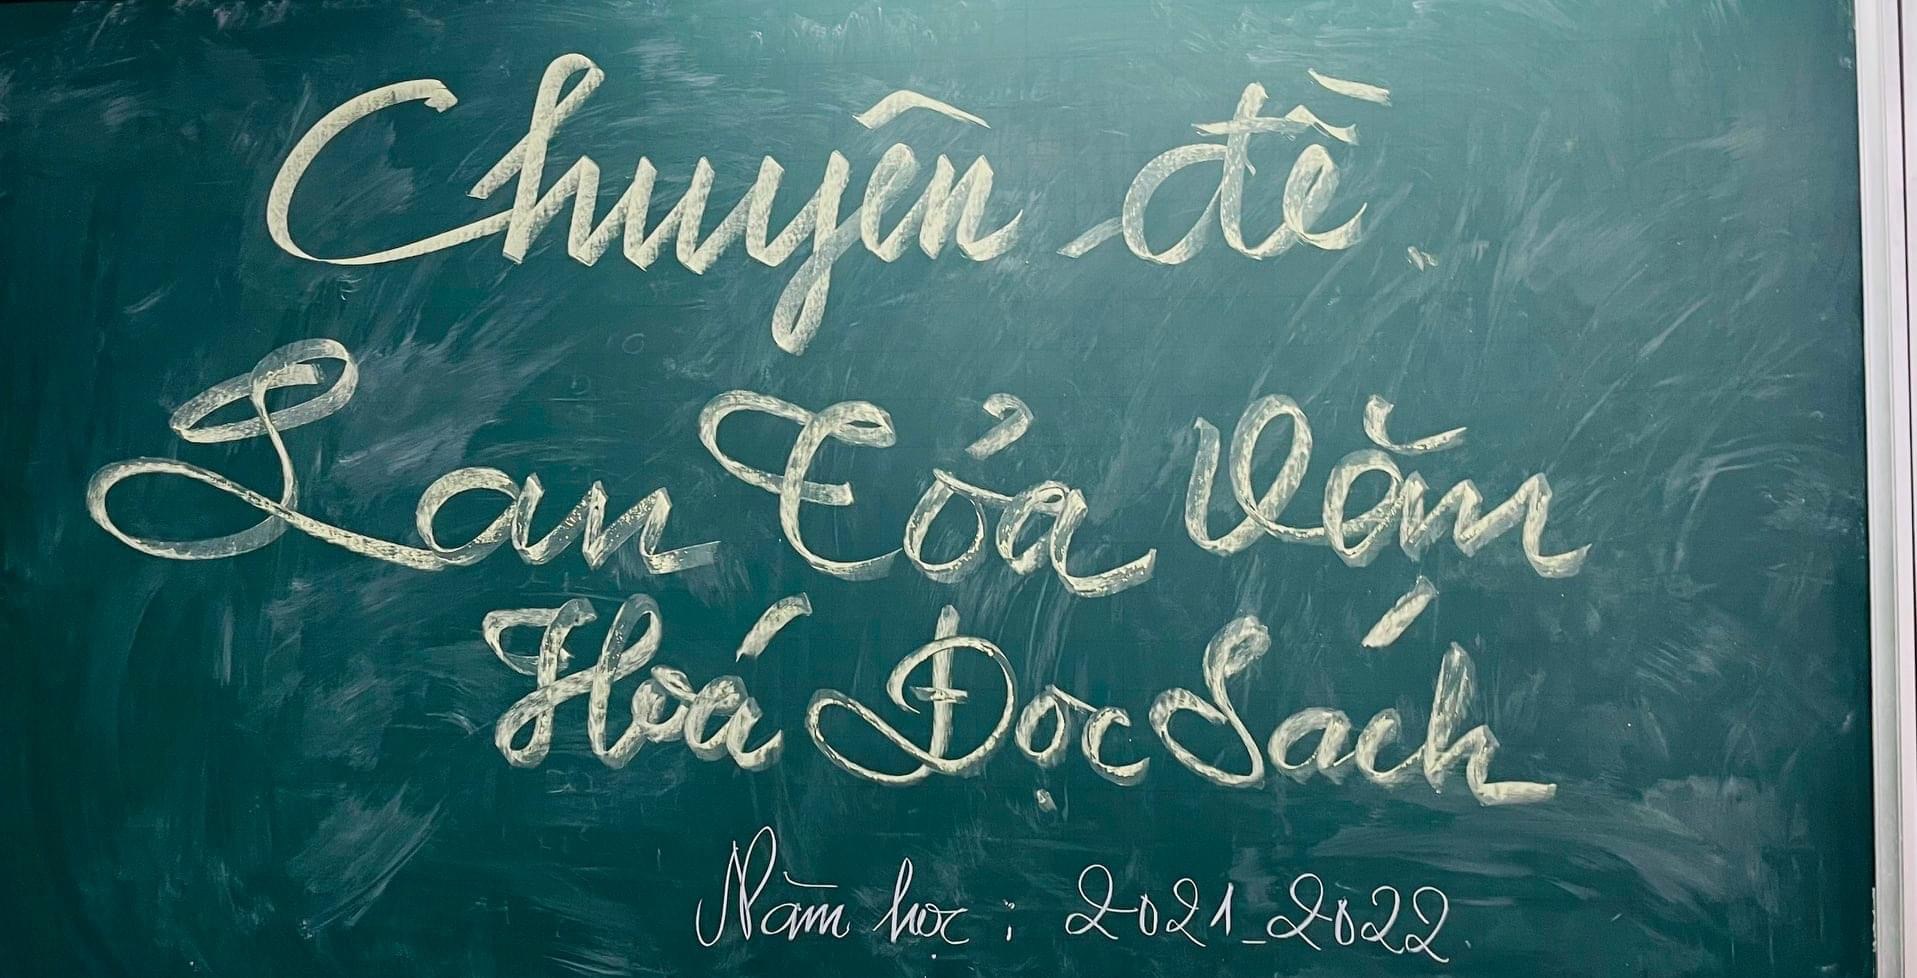 Chuyên đề
Lan Tỏa Văn
Hoá Đọc Sách
Năm học : 2021_2022